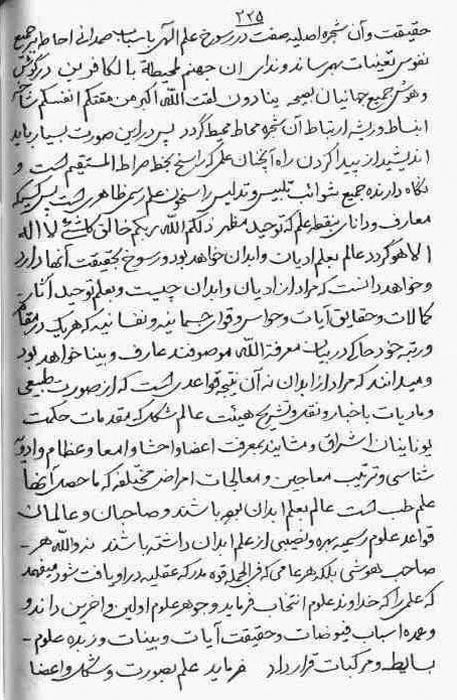 ۲۲۵
حقیقت و آن شجره اصلیه صفت در رسوخ علم الهی با سیاست صمدانی احاطه بر جمیع
نفوس تعینات بهم رساند و ندای ان جهنم لمحیطة بالکافرین در گوش
و هوش جمیع جهانیان بصیحه ینادون لمقت الله اکبر من مقتکم انفسکم شاخ
انبساط و ریشه ارتباط آن شجره محاط محیط گردد پس در این صورت بسیار باید
اندیشید از پیدا کردن راه آنچنان علمی که راسخ بخط صراط المستقیم است و
نگاه دارنده جمیع شوائب تلبیس و تدلیس راسخون علم رسم ظاهری است پس کسیکه
معارف و دانای بنقطه علم که توحید مظهر ذلکم الله ربکم خالق کلشئ لا اله
الا هو گردد عالم بعلم ادیان و ابدان خواهد بود و رسوخ بحقیقت آنها دارد
و خواهد دانست که مراد از ادیان و ابدان چیست و بعلم توحید آثار
کمالات و حقایق آیات و حواس و قوای جسمانیه و نفسانیه که هریک در مقام
و رتبه خود حاکی در بیان معرفة الله موصوفند عارف و بینا خواهد بود
و میدانند که مراد از ابدان نه آن نتیجه قواعدی است که از صورت طبیعی
و مادیات باخبار و نقد و تشریح هیئت عالم شکل که مقدمات حکمت
یونانیان اشراق و مشایند بمعرفت اعضا و احشا و امعا و عظام و ادویه
شناسی و ترتیب معاجین و معالجات امراض مختلفه که ماحصل آنها
علم طب است عالم بعلم ابدان بوده باشند و صاحبان و عالمان
قواعد علوم رسمیه بهره و نصیبی از علم ابدان داشته باشند نه والله هر
صاحب هوشی بلکه هر عامی که فی الجمله قوه مدرکه عقلیه در او یافت شود میفهمد
که علمی را که خداوند علوم انتخاب فرماید و جوهر علوم اولین و آخرین داند و
و عمده اسباب فیوضات و حقیقت آیات و بینات و زبده علوم
بسایط و مرکبات قرار داد فرماید علم بصورت و شکل و اعضا